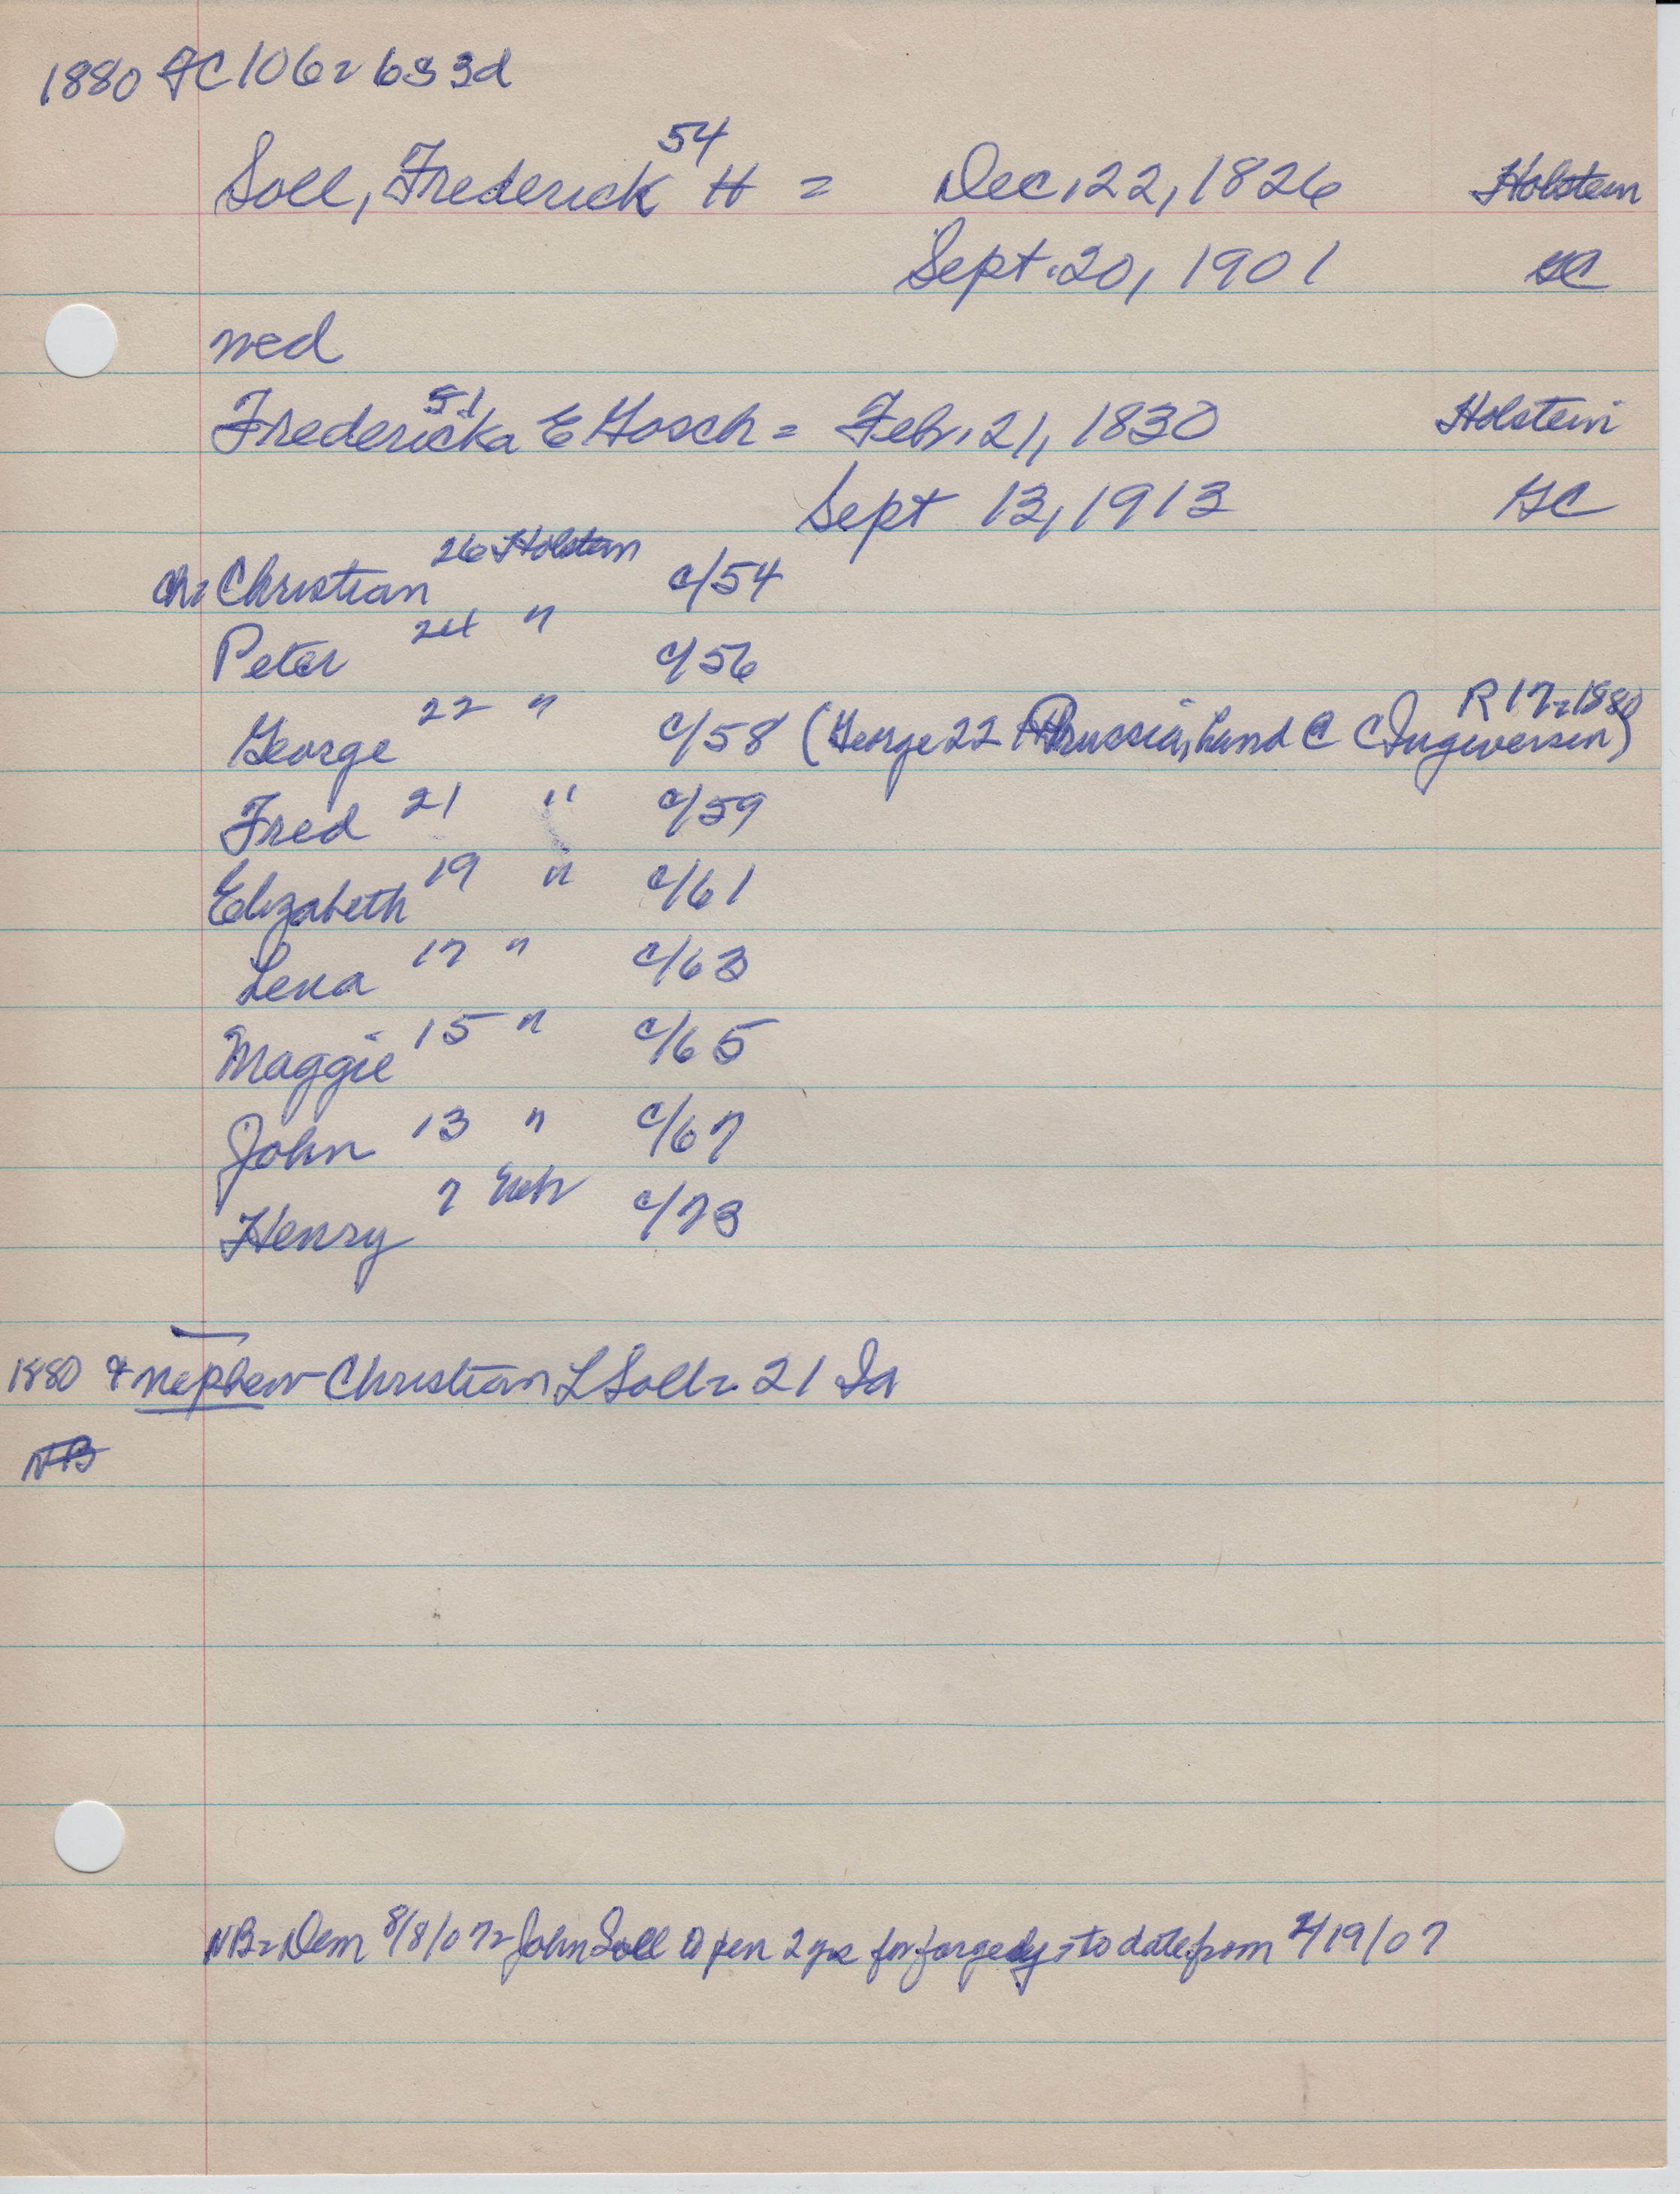 1880 GC 106 = 633d
54
Soll, Frederick H = Dec. 22, 1826 Holstein
Sept. 20, 1901 GC
wed
51
Fredericka E Gosch = Feb. 21, 1830 Holstein
Sept 13, 1913 GC
ch = Christian 26 Holstein c/54
Peter 24 " c/56
George 22 " c/58 (George 22 Prussia, hand @ C C Ingwersen) R 17 = 1880
Fred 21 " c/59
Elizabeth 19 " c/61
Lena 17 " c/63
Maggie 15 " c/65
John 13 " c/67
Henry 7 Neb c/73
1880 & nephew Christian L Soll = 21 Ia
NB
NB = Dem 8/8/07 = John Soll @ pen 2 yrs for forgedy = to date from 2/19/07